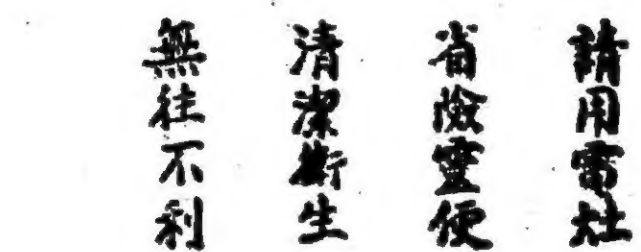 請用電灶
省險靈便
清潔衛生
無往不利